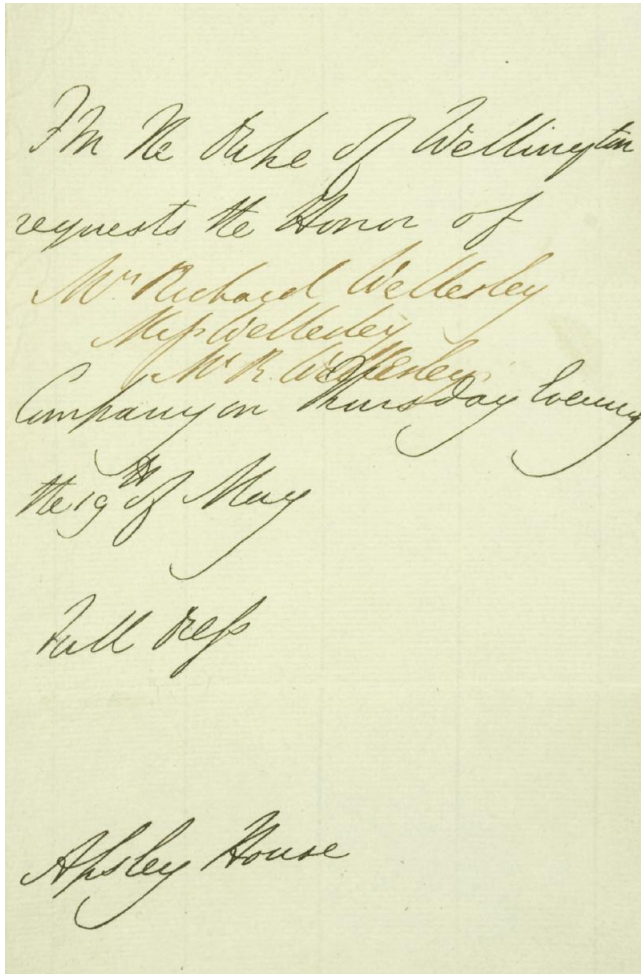 FM the Duke of Wellington
requests the Honor of
Mrs. Richard Wellesley
Miss Wellesley
Mr R. Wellesley
Company on Thursday Evening
the 19th of May
Full Dress
Apsley House